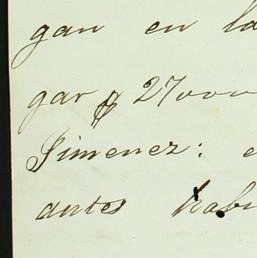 gan en la
gar $ 27000
Jimenez:
antes hab